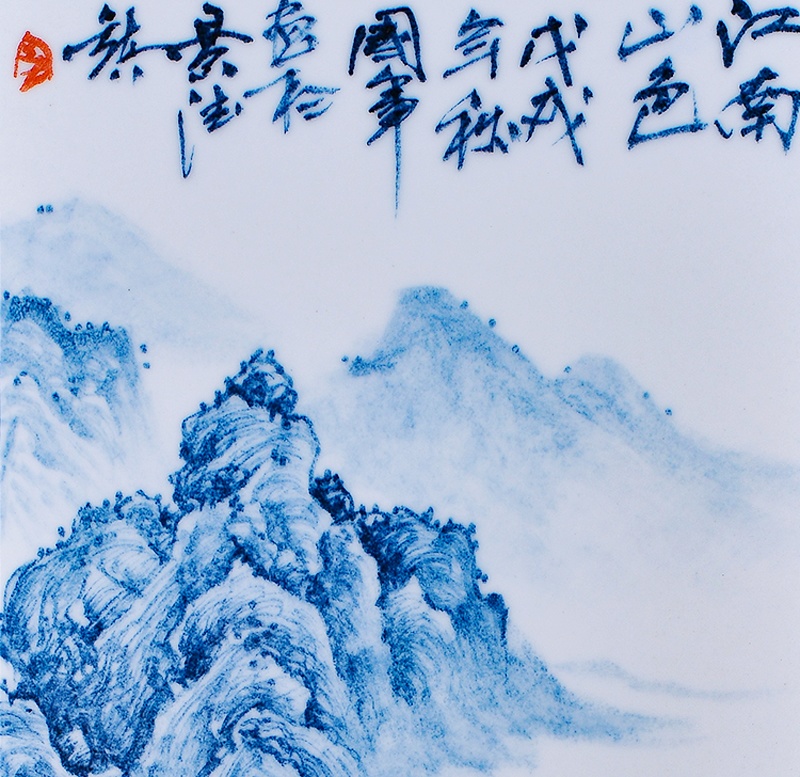 江南
山色
戊戌
年秋
國
於
景德
鎮